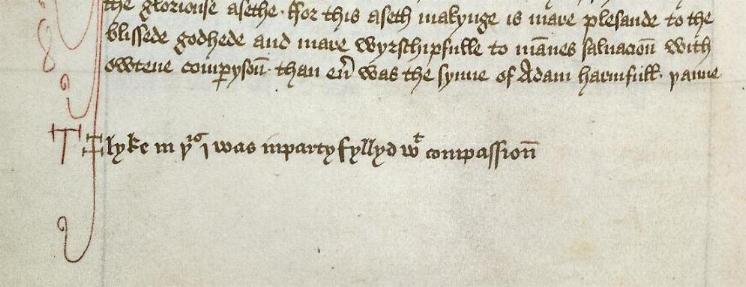 the gloriouse asethe. ffor this aseth makynge is mare plesande to the
blissede godhede and mare wyrschipfulle to mānes saluacioū with
owtene comparysoū. than eū was the synne of Adam harmfull. yanne
lyke in yis I was inparty fyllyd wt compassioū